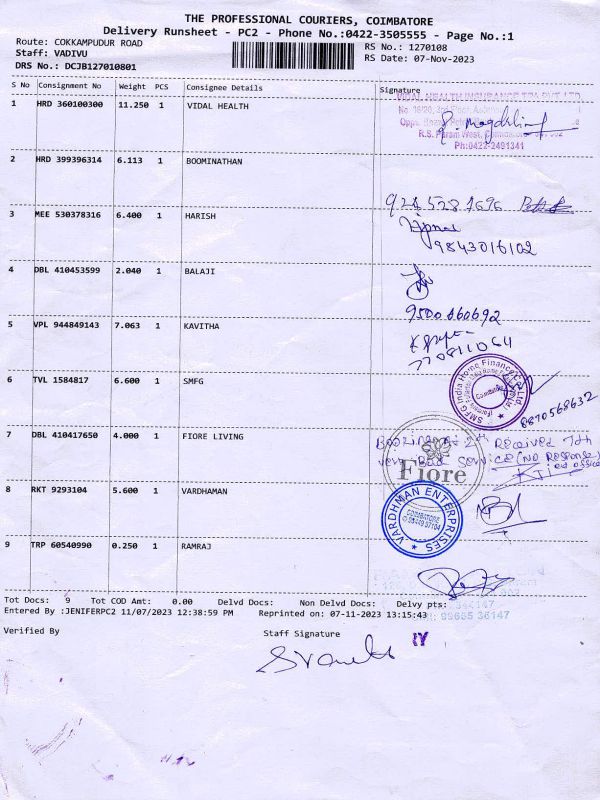 THE PROFESSIONAL COURIERS, COIMBATORE
Delivery Runsheet - PC2 - Phone No.:0422-3505555 - Page No.:1
Route: COKKAMPUDUR ROAD
RS No.: 1270108
Staff: VADIVU
RS Date: 07-Nov-2023
DRS No.: DCJB127010801
S No Consignment No Weight PCS Consignee Details Signature
1 HRD 360100300 11.250 1 VIDAL HEALTH
VIDAL HEALTH INSURANCE TPA PVT LTD
R.S. Puram West,
Ph:0422-2491341
2 HRD 399396314 6.113 1 BOOMINATHAN
3 MEE 530378316 6.400 1 HARISH
9843016102
4 DBL 410453599 2.040 1 BALAJI
5 VPL 944849143 7.063 1 KAVITHA
6 TVL 1584817 6.600 1 SMFG
SMFG India Home Finance Co. Ltd
8870568632
7 DBL 410417650 4.000 1 FIORE LIVING
Received 7th
very Bad service (NO Response)
Fiore
8 RKT 9293104 5.600 1 VARDHAMAN
VARDHMAN ENTERPRISES
COIMBATORE
9 TRP 60540990 0.250 1 RAMRAJ
Tot Docs: 9 Tot COD Amt: 0.00 Delvd Docs: Non Delvd Docs: Delvy pts:
Entered By :JENIFERPC2 11/07/2023 12:38:59 PM Reprinted on: 07-11-2023 13:15:43
Verified By Staff Signature